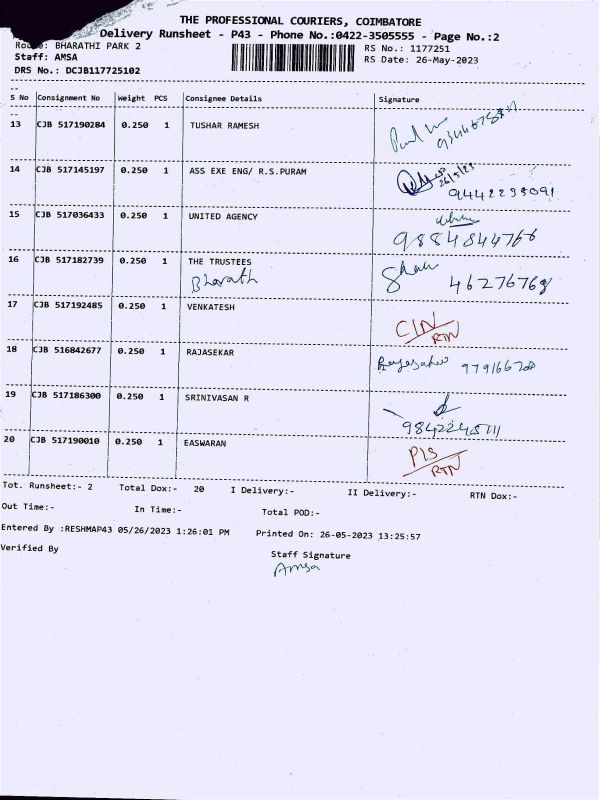 THE PROFESSIONAL COURIERS, COIMBATORE
Delivery Runsheet - P43 - Phone No.:0422-3505555 - Page No.:2
BHARATHI PARK 2 RS No.: 1177251
Staff: AMSA RS Date: 26-May-2023
DRS No.: DCJB117725102
S No Consignment No Weight PCS Consignee Details Signature
13 CJB 517190284 0.250 1 TUSHAR RAMESH
14 CJB 517145197 0.250 1 ASS EXE ENG/ R.S.PURAM 26/5/23
9442235091
15 CJB 517036433 0.250 1 UNITED AGENCY
9884844766
16 CJB 517182739 0.250 1 THE TRUSTEES
Bharath 46276768
17 CJB 517192485 0.250 1 VENKATESH
CIN
RTN
18 CJB 516842677 0.250 1 RAJASEKAR
19 CJB 517186300 0.250 1 SRINIVASAN R
20 CJB 517190010 0.250 1 EASWARAN
RTN
Tot. Runsheet:- 2 Total Dox:- 20 I Delivery:- II Delivery:- RTN Dox:-
Out Time:- In Time:- Total POD:-
Entered By :RESHMAP43 05/26/2023 1:26:01 PM Printed On: 26-05-2023 13:25:57
Verified By Staff Signature
Amsa